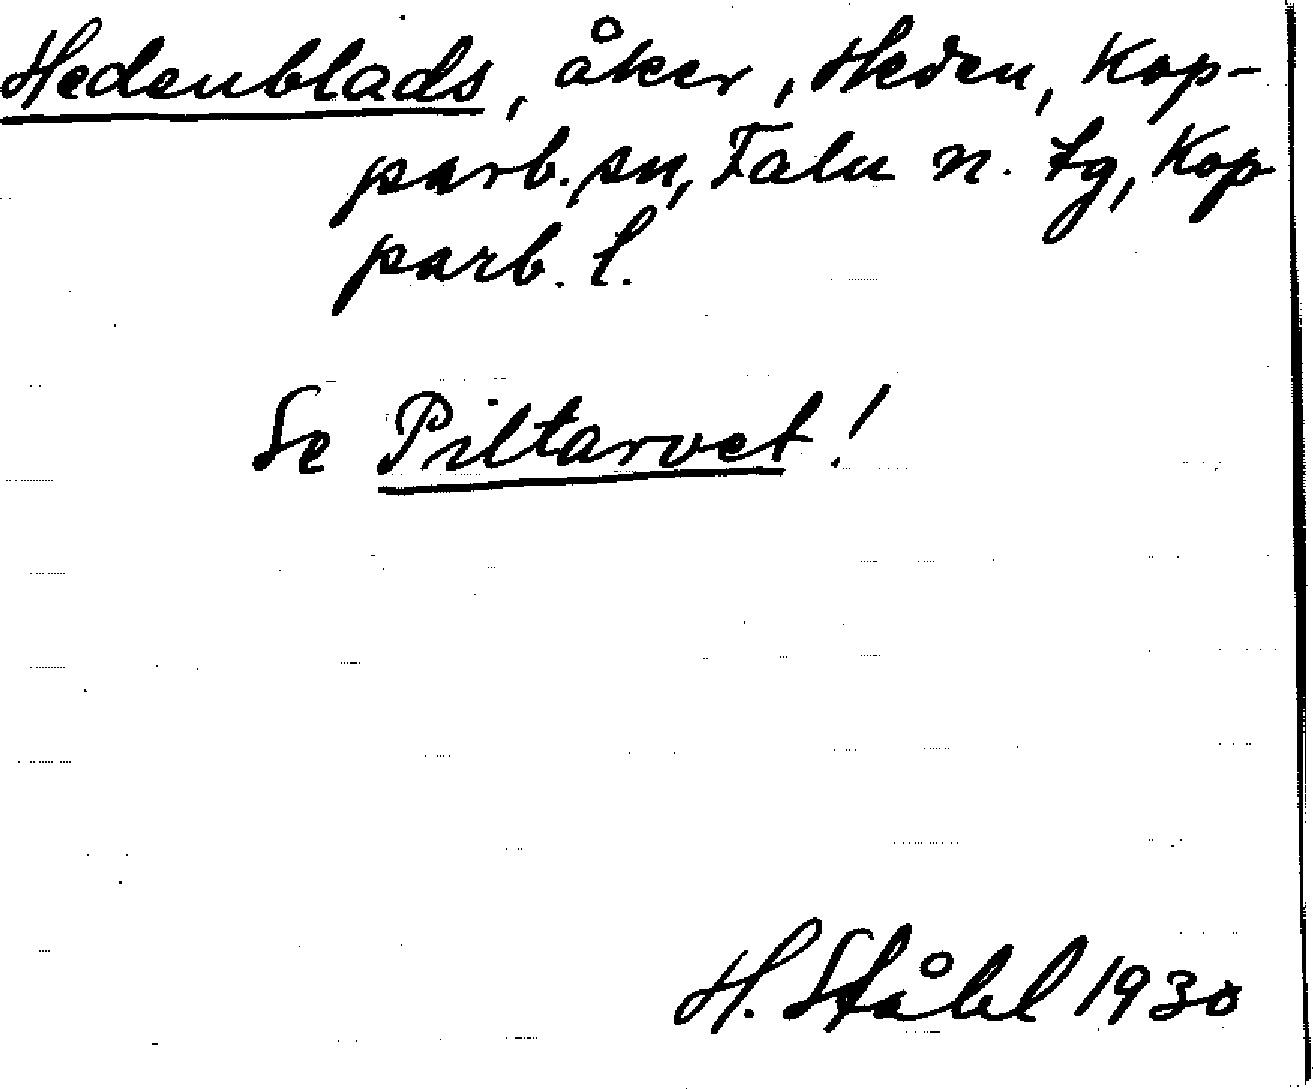 Hedenblads, åker, Heden, Kop-
parb. sn, Falu n. tg, Kop
parb. l.
Se Piltarvet!
H. Ståhl 1930